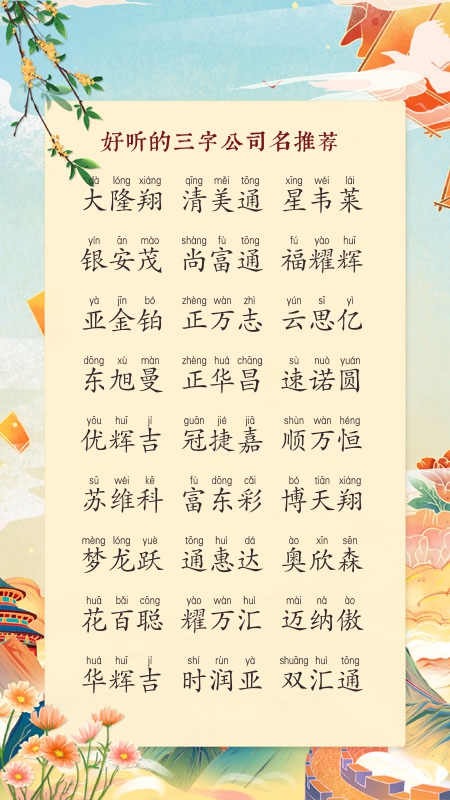 好听的三字公司名推荐
dà lóng xiáng qīng měi tōng xīng wéi lái
大隆翔 清美通 星韦莱
yín ān mào shàng fù tōng fú yào huī
银安茂 尚富通 福耀辉
yà jīn bó zhèng wàn zhì yún sī yì
亚金铂 正万志 云思亿
dōng xù màn zhèng huá chāng sù nuò yuán
东旭曼 正华昌 速诺圆
yōu huī jí guān jié jiā shùn wàn héng
优辉吉 冠捷嘉 顺万恒
sū wéi kē fù dōng cǎi bó tiān xiáng
苏维科 富东彩 博天翔
mèng lóng yuè tōng huì dá ào xīn sēn
梦龙跃 通惠达 奥欣森
huā bǎi cōng yào wàn huì mài nà ào
花百聪 耀万汇 迈纳傲
huá huī jí shí rùn yà shuāng huì tōng
华辉吉 时润亚 双汇通